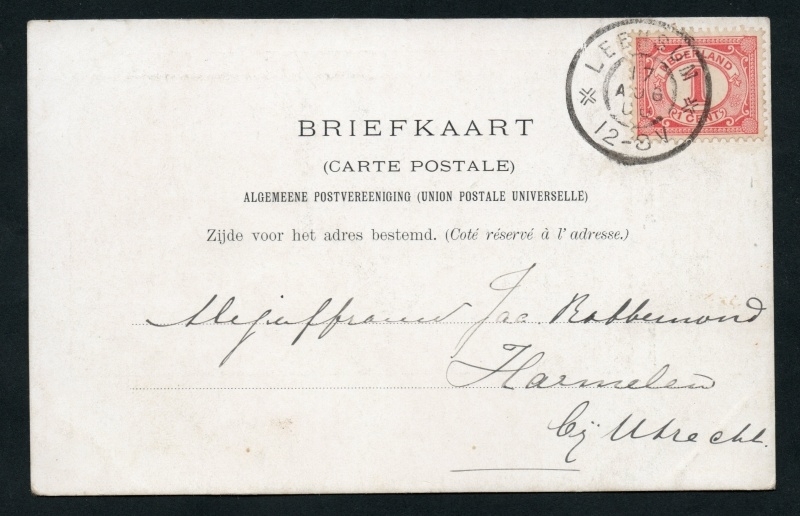 NEDERLAND
1
(1 CENT)
LEERSUM
17
AUG
12-3V
BRIEFKAART
(CARTE POSTALE)
ALGEMEENE POSTVEREENIGING (UNION POSTALE UNIVERSELLE)
Zijde voor het adres bestemd. (Coté réservé à l'adresse.)
Mejuffrouw Jac. Robbemond
Harmelen
bij Utrecht.